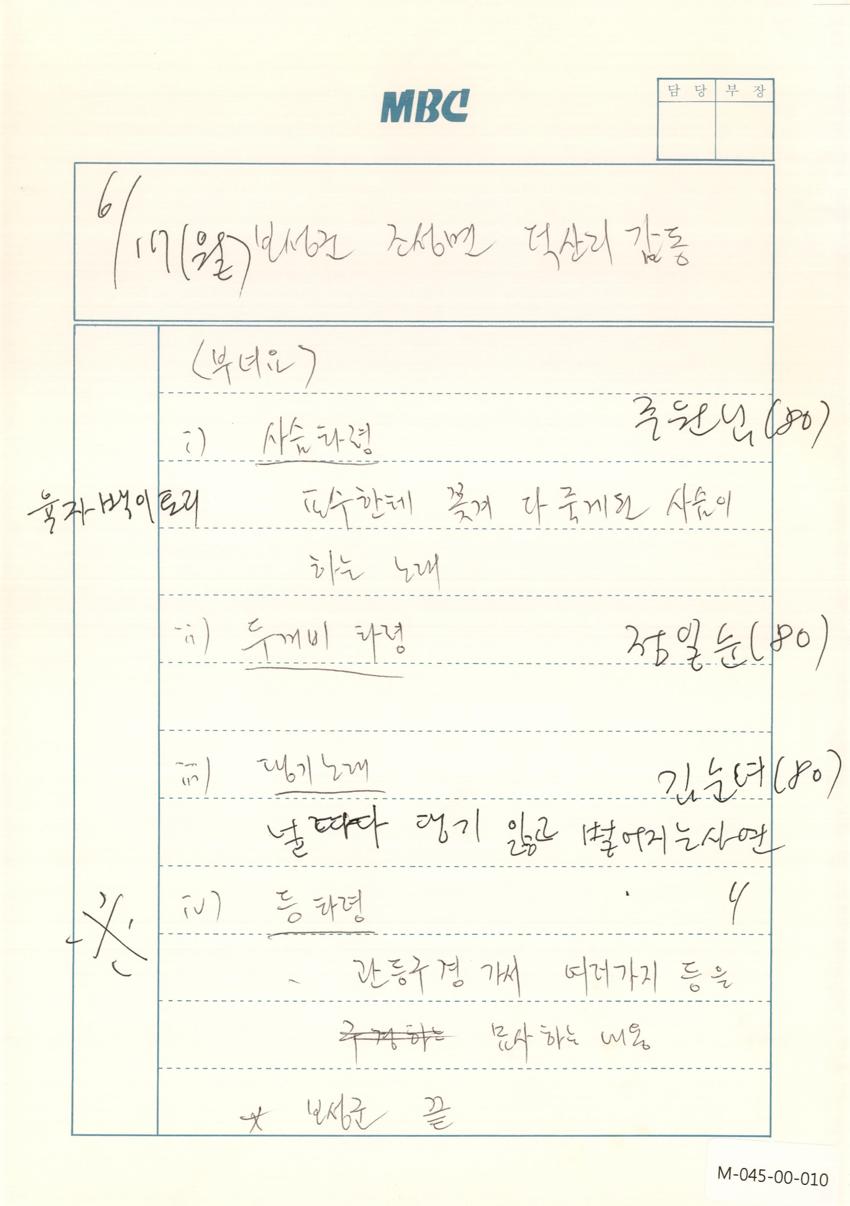 MBC
담당 부장
6/17(월) 보성군 조성면 덕산리 감동
(부녀요)
i) 사슴타령 주원님(80)
육자백이토리 포수한테 쫓겨 다 죽게된 사슴이
하는 노래
ii) 두꺼비 타령 정일순(80)
iii) 댕기노래 김순녀(80)
널 뛰다 댕기 잃고 벌어지는 사연
※ iv) 등타령 〃
관등구경 가서 여러가지 등을
구경하는 묘사하는 내용
* 보성군 끝
M-045-00-010